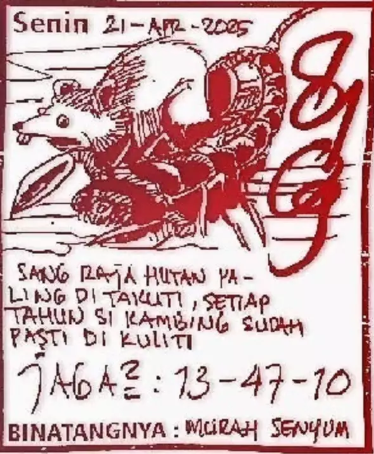 Senin 21-APR-2025
SANG RAJA HUTAN PA-
LING DI TAKUTI, SETIAP
TAHUN SI KAMBING SUDAH
PASTI DI KULITI
JAGA2 : 13-47-10
BINATANGNYA : MURAH SENYUM